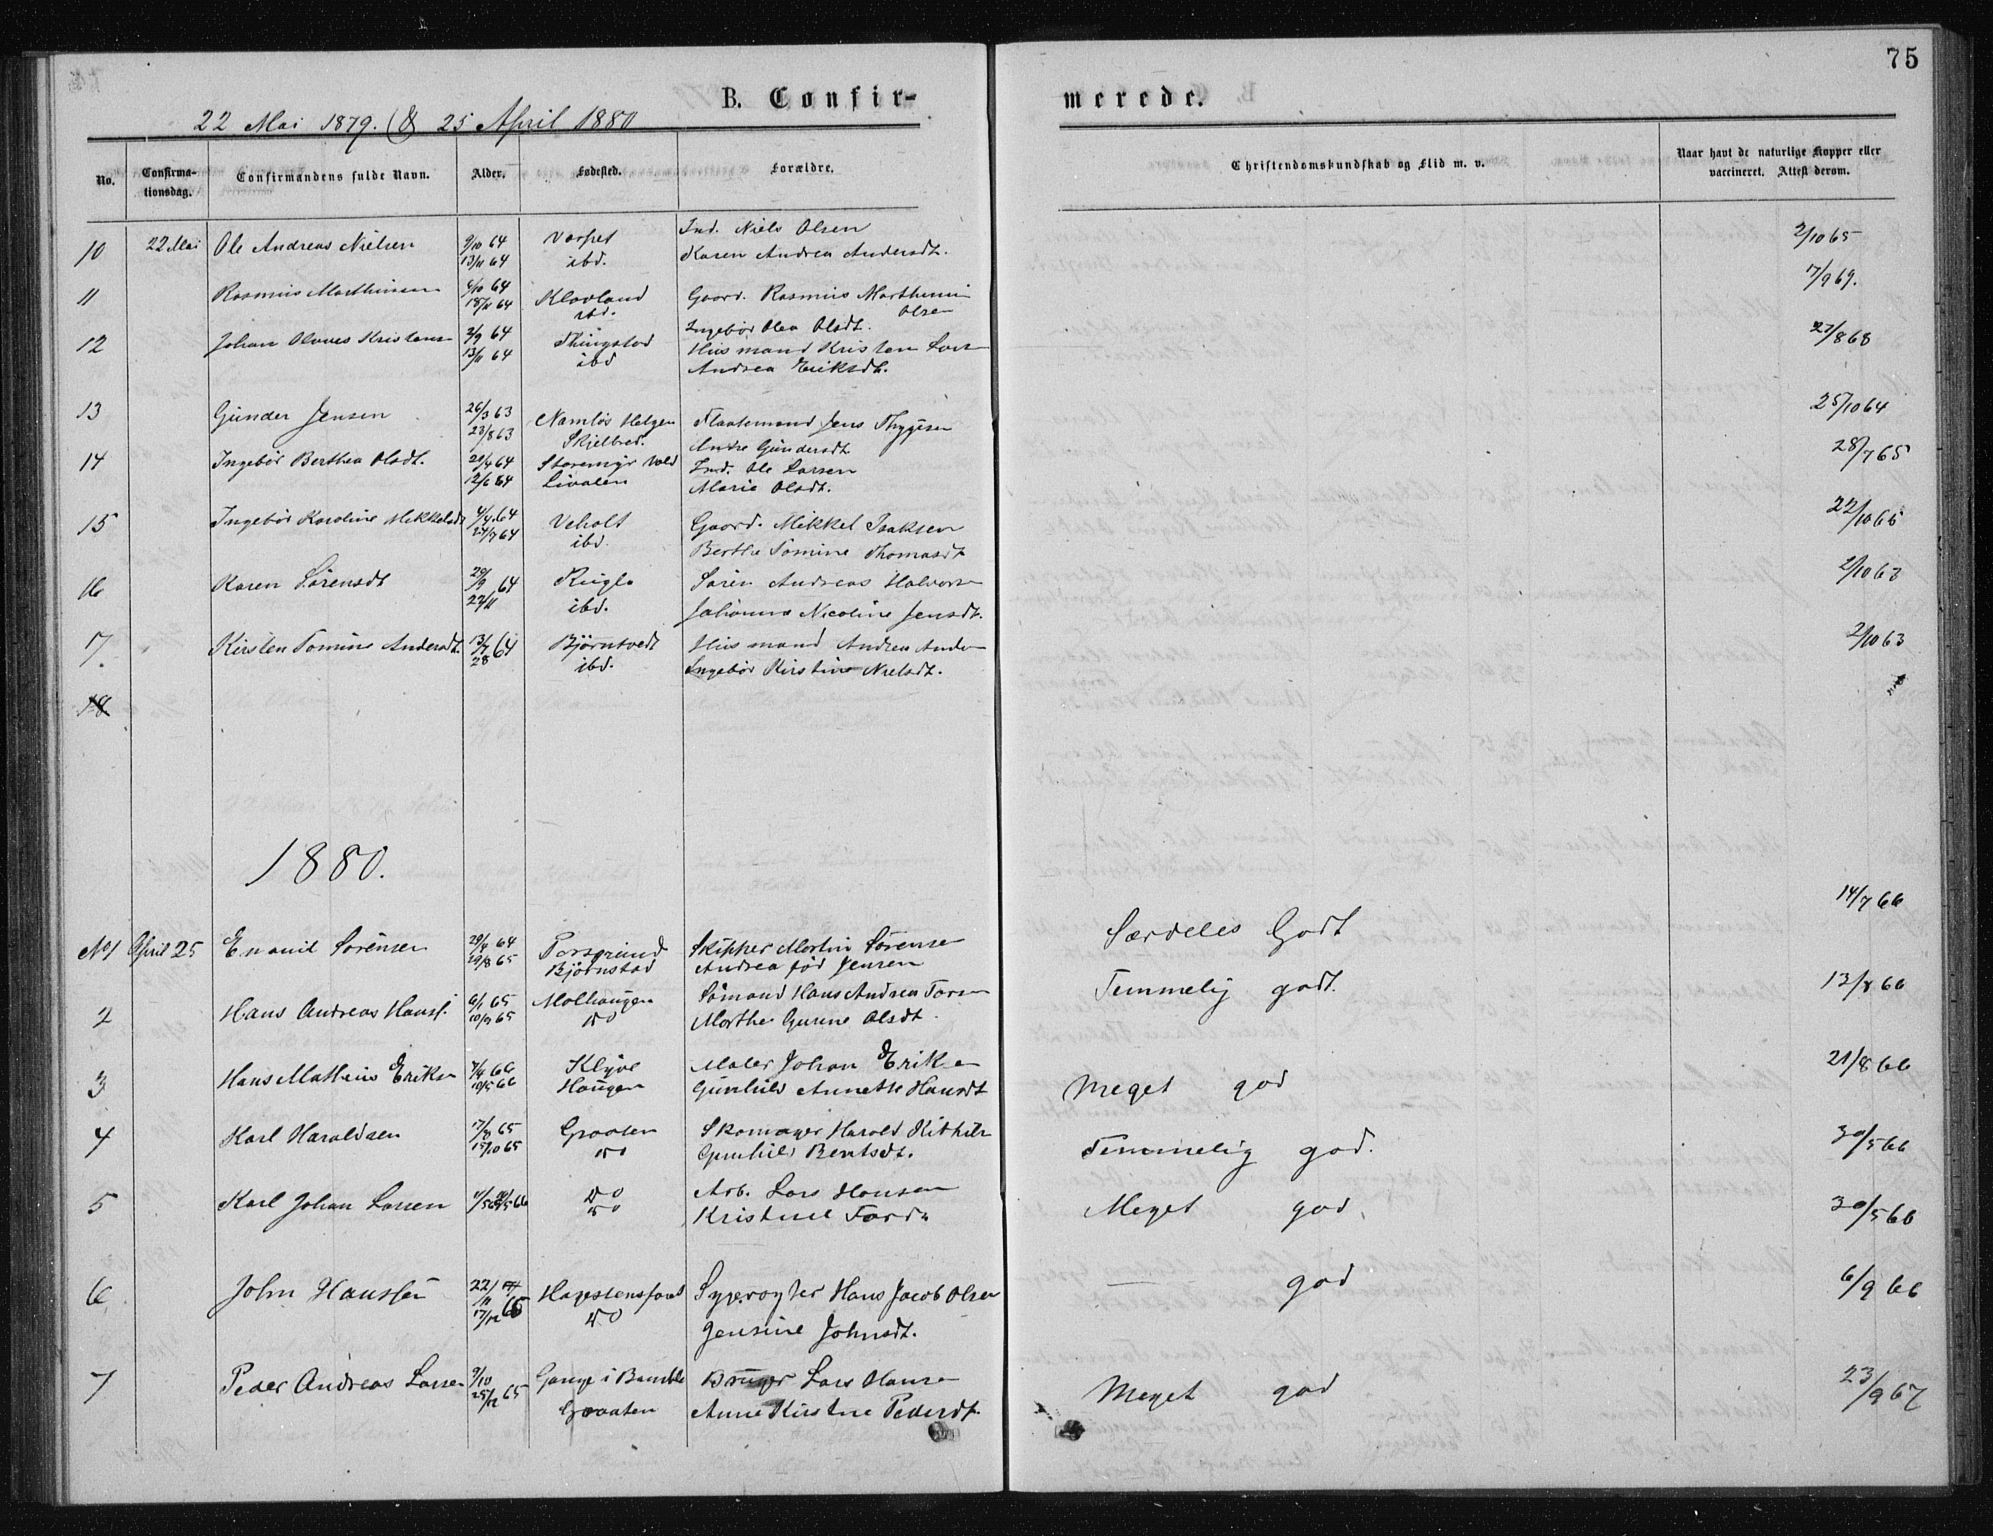 75
B. Confir-
merede.
22 Mai 1879. & 25 April 1880
No.
Confirma-
tionsdag.
Confirmandens fulde Navn.
Alder.
Fødested.
Forældre.
Christendomskundskab og Flid m. v.
Naar havt de naturlige Kopper eller
vaccineret. Attest derom.
10 22 Mai Ole Andreas Nielsen 9/10 64 Ind. Niels Olsen 2/10 65
13/11 64 ibd. Karen Andrea Andersdt.
11 Rasmus Mathiesen 4/10 64 Klovland Gaard. Rasmus Marthin 7/9 69.
18/11 64 ibd. Olsen
Ingebør Olea Olsdt.
12 Johan Olaves Kristens 2/9 64 Thingstad Husmand Kristen Lars 27/8 68
13/11 64 ibd Andrea Eriksdt.
13 Gunder Jensen 26/3 63 Namløs Helgen Flaatemand Jens Thygesen 25/10 64
23/8 63 Skilbred. Andre Gundersdt
14 Ingebør Berthea Olsdt. 20/4 64 Storemyr Ind. Ole Larsen 28/7 65
12/6 64 Livalen Marie Olsdt.
15 Ingebør Karoline Mikkelsdt 4/4 64 Veholt Gaard. Mikkel Isaksen 22/10 66
24/7 64 ibd. Berthe Tomine Thomasdt
16 Karen Sørensdt 29/9 64 Rugla Søren Andreas Halvors 2/10 63
22/11 ibd. Johanne Nicoline Jensdt.
17. Kirsten Tomine Andersdt. 13/7 64 Bjørntvedt Husmand Andrea Ander 2/10 63
28 ibd. Ingebør Kirstine Nielsdt.
18
1880.
No 1 April 25 Enauil Sørensen 29/4 64 Porsgrund Skipper Martin Sørense Særdeles Godt 14/7 66
29/8 65 Bjørnstad Andrea fød Jensen
2 Hans Andreas Hansf. 6/1 65 Molhaugen Sømand Hans Andrea Tors Temmelig godt. 13/8 66
10/9 65 Do Marthe Gurine Olsdt.
3 Hans Mathius Eriks 7/4 66 Klyve Maler Johan Erikse Meget god 21/8 66
10/5 66 Haugen Gunhild Annette Hansdt
4 Karl Haraldsen 17/8 65 Graaten Skomager Harald Kithils Temmelig god. 30/5 66
15/10 65 Do Gunhild Bentsdt.
5 Karl Johan Larsen Do Arb. Lars Hansen Meget god, 30/5 66
Do Kristine Tord
6 John Hanssen 22/11 Hagestensfoss Hans Jacob Olsen — god 6/9 66
17/12 65 Do Jensine Johnsdt.
7 Peder Andreas Larsen 9/10 i Bamble Bruger Lars Hanse Meget god 23/9 67
25/12 65 Graaten Anne Kirstine Pedersdt.